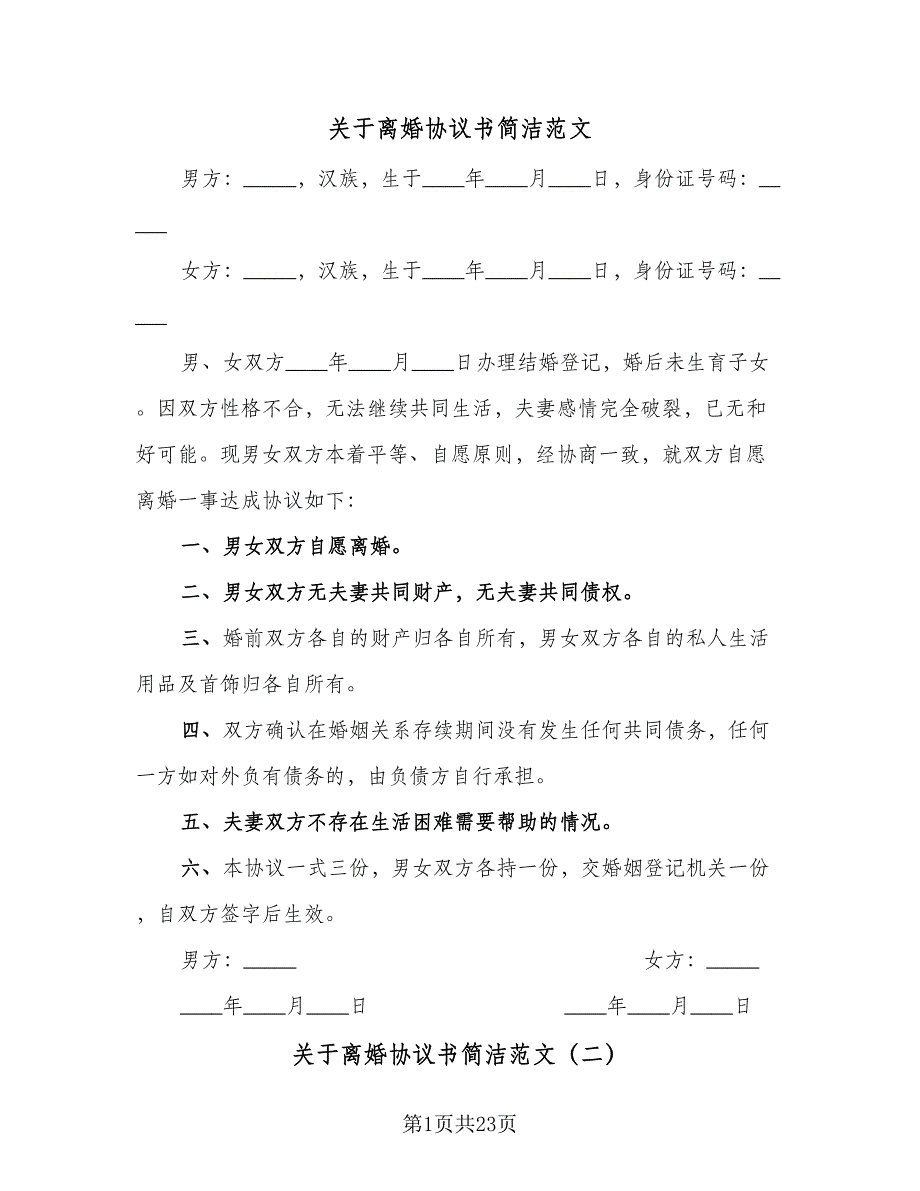 关于离婚协议书简洁范文
男方：_____，汉族，生于____年____月____日，身份证号码：__
___
女方：_____，汉族，生于____年____月____日，身份证号码：__
___
男、女双方____年____月____日办理结婚登记，婚后未生育子女
。因双方性格不合，无法继续共同生活，夫妻感情完全破裂，已无和
好可能。现男女双方本着平等、自愿原则，经协商一致，就双方自愿
离婚一事达成协议如下：
一、男女双方自愿离婚。
二、男女双方无夫妻共同财产，无夫妻共同债权。
三、婚前双方各自的财产归各自所有，男女双方各自的私人生活
用品及首饰归各自所有。
四、双方确认在婚姻关系存续期间没有发生任何共同债务，任何
一方如对外负有债务的，由负债方自行承担。
五、夫妻双方不存在生活困难需要帮助的情况。
六、本协议一式三份，男女双方各持一份，交婚姻登记机关一份
，自双方签字后生效。
男方：_____ 女方：_____
____年____月____日 ____年____月____日
关于离婚协议书简洁范文（二）
第1页共23页